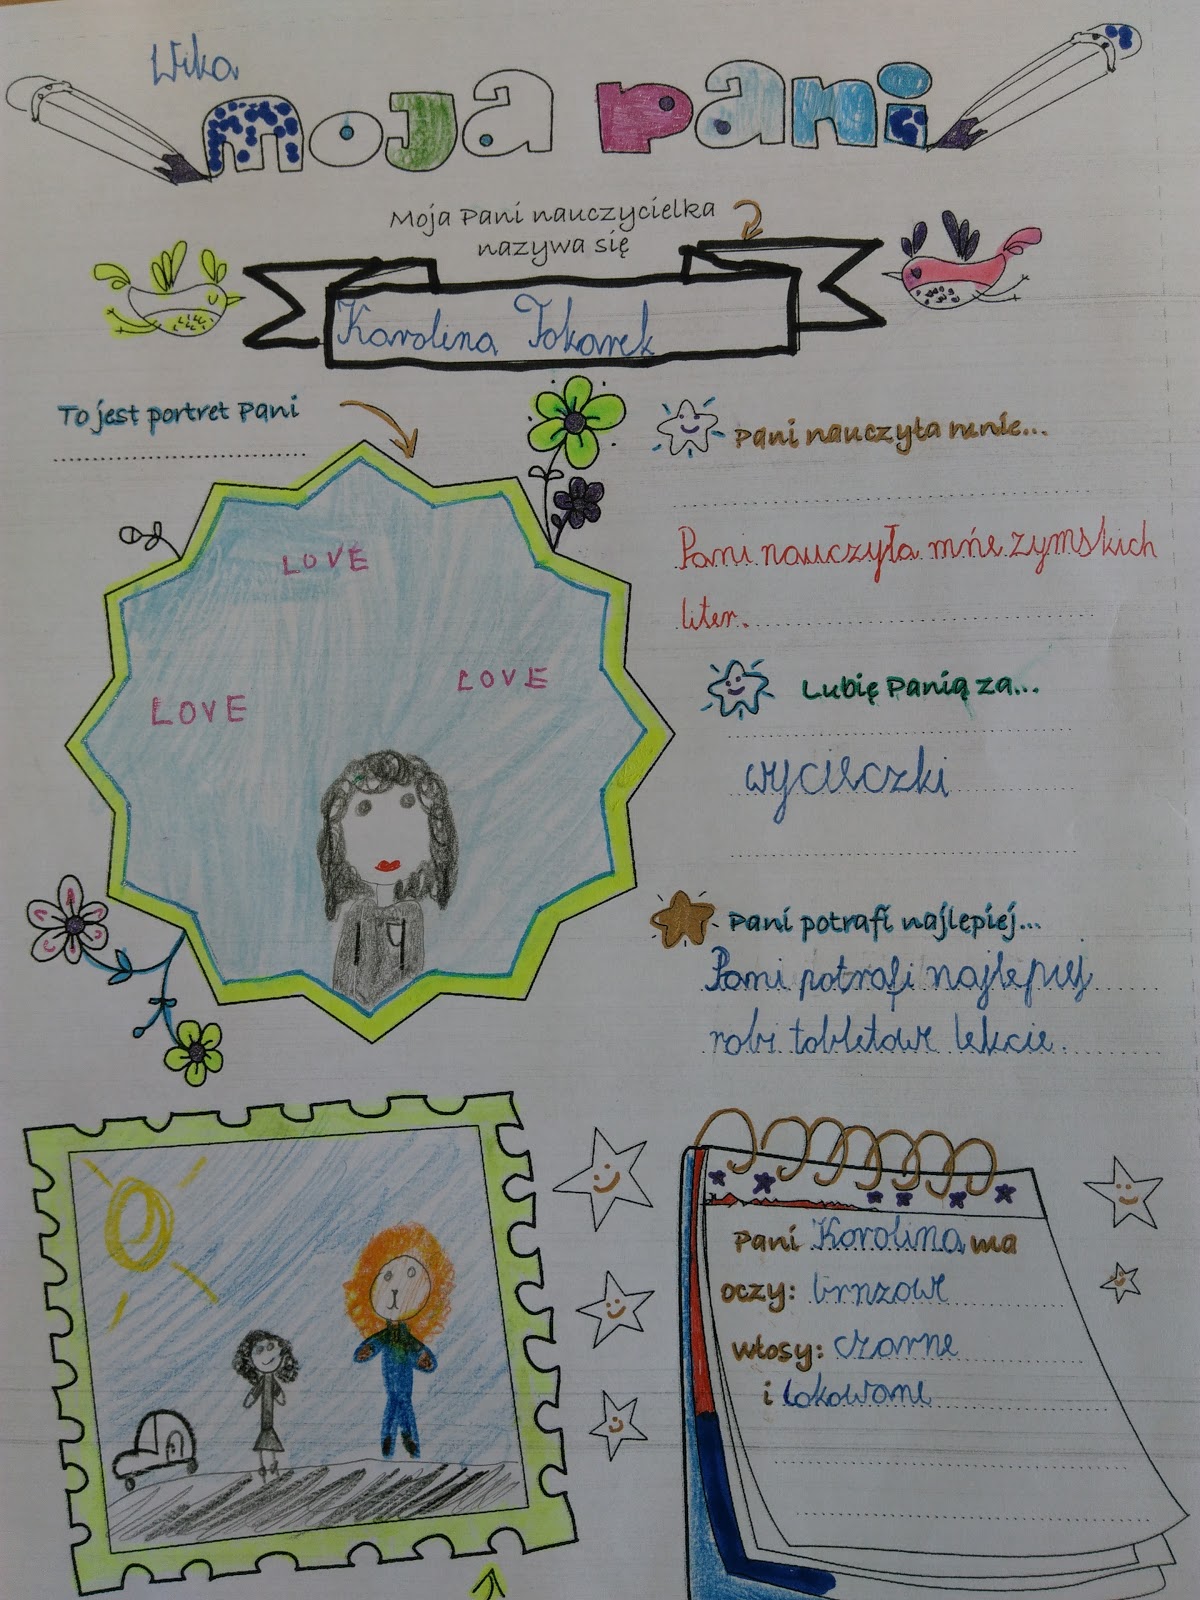 Wika
moja pani
Moja Pani nauczycielka
nazywa się
Karolina Tokarek
To jest portret Pani
LOVE
LOVE
LOVE
Pani nauczyła mnie...
Pani nauczyła mńe zymskich
liter.
Lubię Panią za...
wycieczki
Pani potrafi najlepiej...
Pani potrafi najlepiej
robi tabletowe lekcie.
Pani Karolina ma
oczy: brnzowe
włosy: czarne
i lokowane